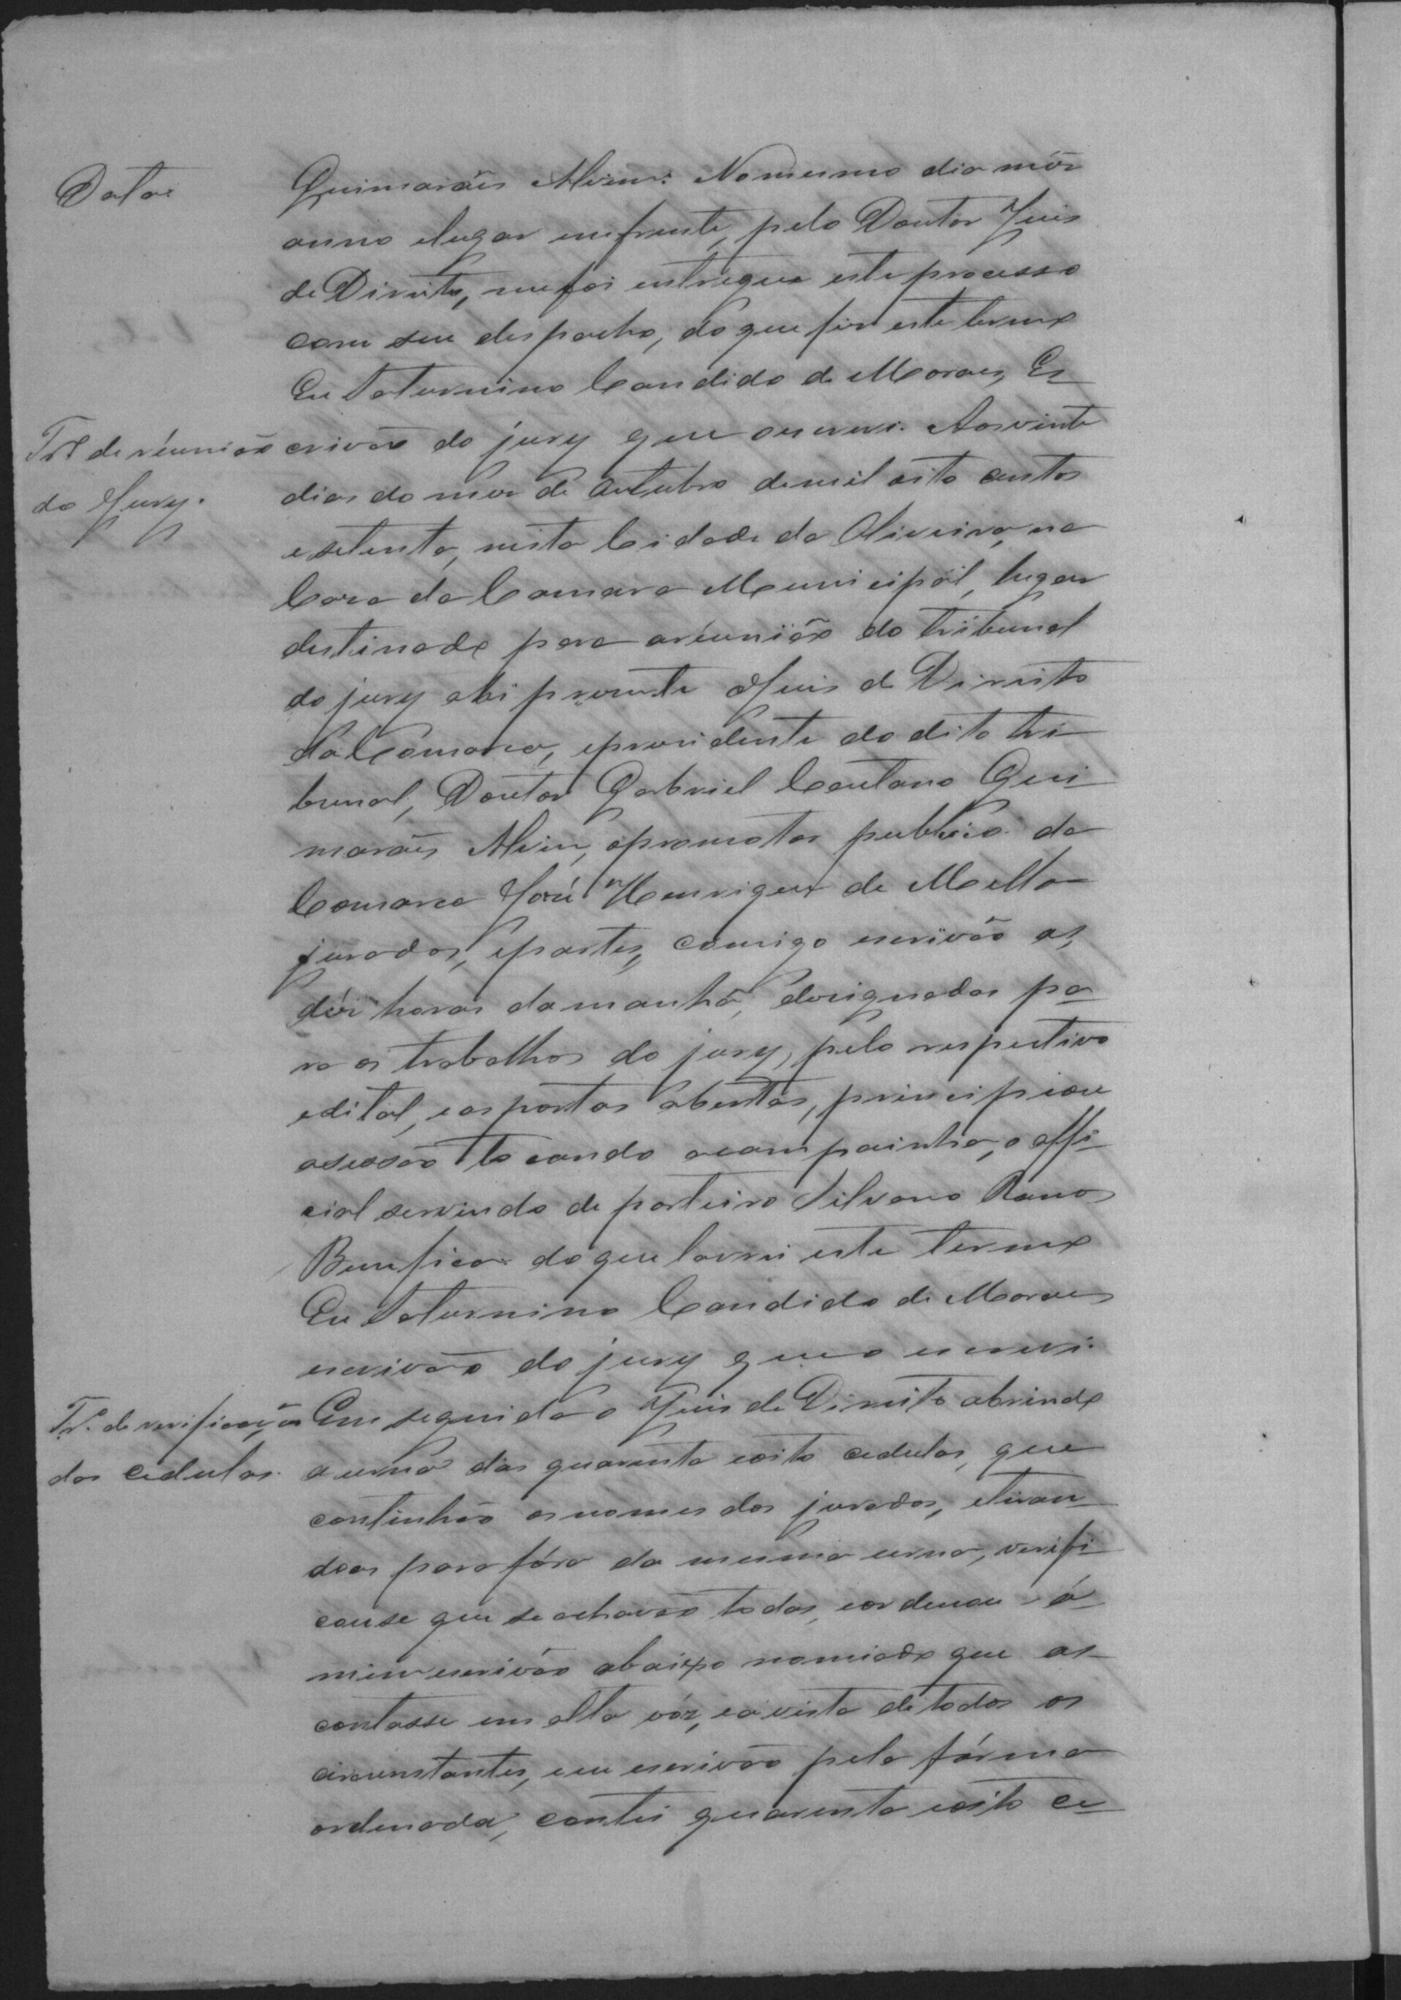 Data
Guimarães Alvim. No mesmo dia mês
anno elugar emfrente, pelo Doutor Juis
de Direito, mefoi entregue este processo
com seu despacho, doque fis este termo
Eu Saturnino Candido de Moraes, Es
Trº de réunião
do Jury.
crivão do jury que oescrevi. Aosvinte
dias do mes de Outubro demil oito centos
esetenta, nesta Cidade da Oliveira, na
Casa da Camara Municipal, lugar
destinado para areunião do tribunal
do jury ahi presente oJuis de Direito
daComarca, epresidente do dito tri
bunal, Doutor Gabriel Caetano Gui
marães Alvim, opromotor publico da
Comarca José Henriques de Mello
jurados, epartes, comigo escrivão as
dés horas damanhã, designadas pa
ra os trabalhos do jury, pelo respectivo
edital, eas portas abertas, principiou
asessão tocando acampainha, o offi
cial servindo de porteiro Silvano Ramos
Bemfica doque lavrei este termo
Eu Saturnino Candido de Moraes
escrivão do jury que o escrevi.
Trº de verificação
das cedulas.
Em seguida o Juis de Direito abrindo
aurna das quarenta eoito cedulas, que
continhão osnomes dos jurados, etiran
doas para fóra da mesma urna, verifi
couse que se achavão todas, eordenou á
mim escrivão abaixo nomiado que as
contasse em alta vóz, eavista detodos os
circunstantes, eeu escrivão pela fórma
ordenada, contei quarenta eoito ce